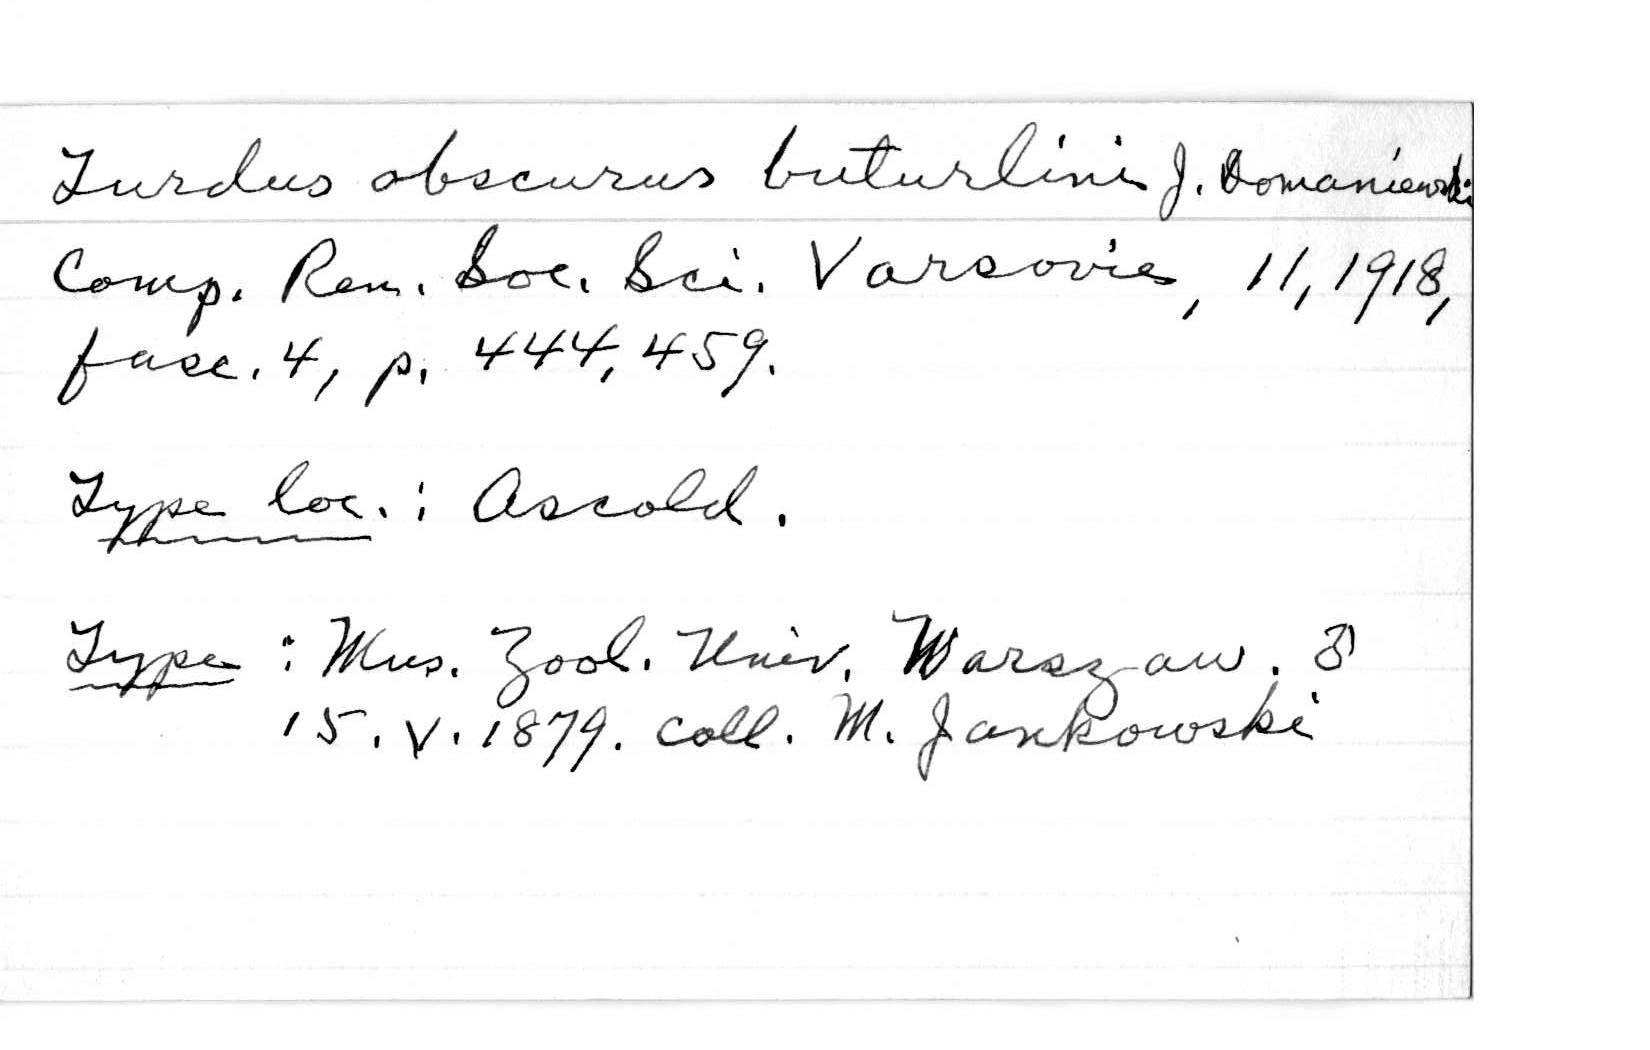 Turdus obscurus buturlini J. Domaniewski
Comp. Ren. Soc. Sci. Varsovie, 11, 1918,
fasc. 4, p. 444, 459.
Type loc. : Ascold.
Type : Mus. Zool. Univ. Warszaw. ♂
15. V. 1879. coll. M. Jankowski